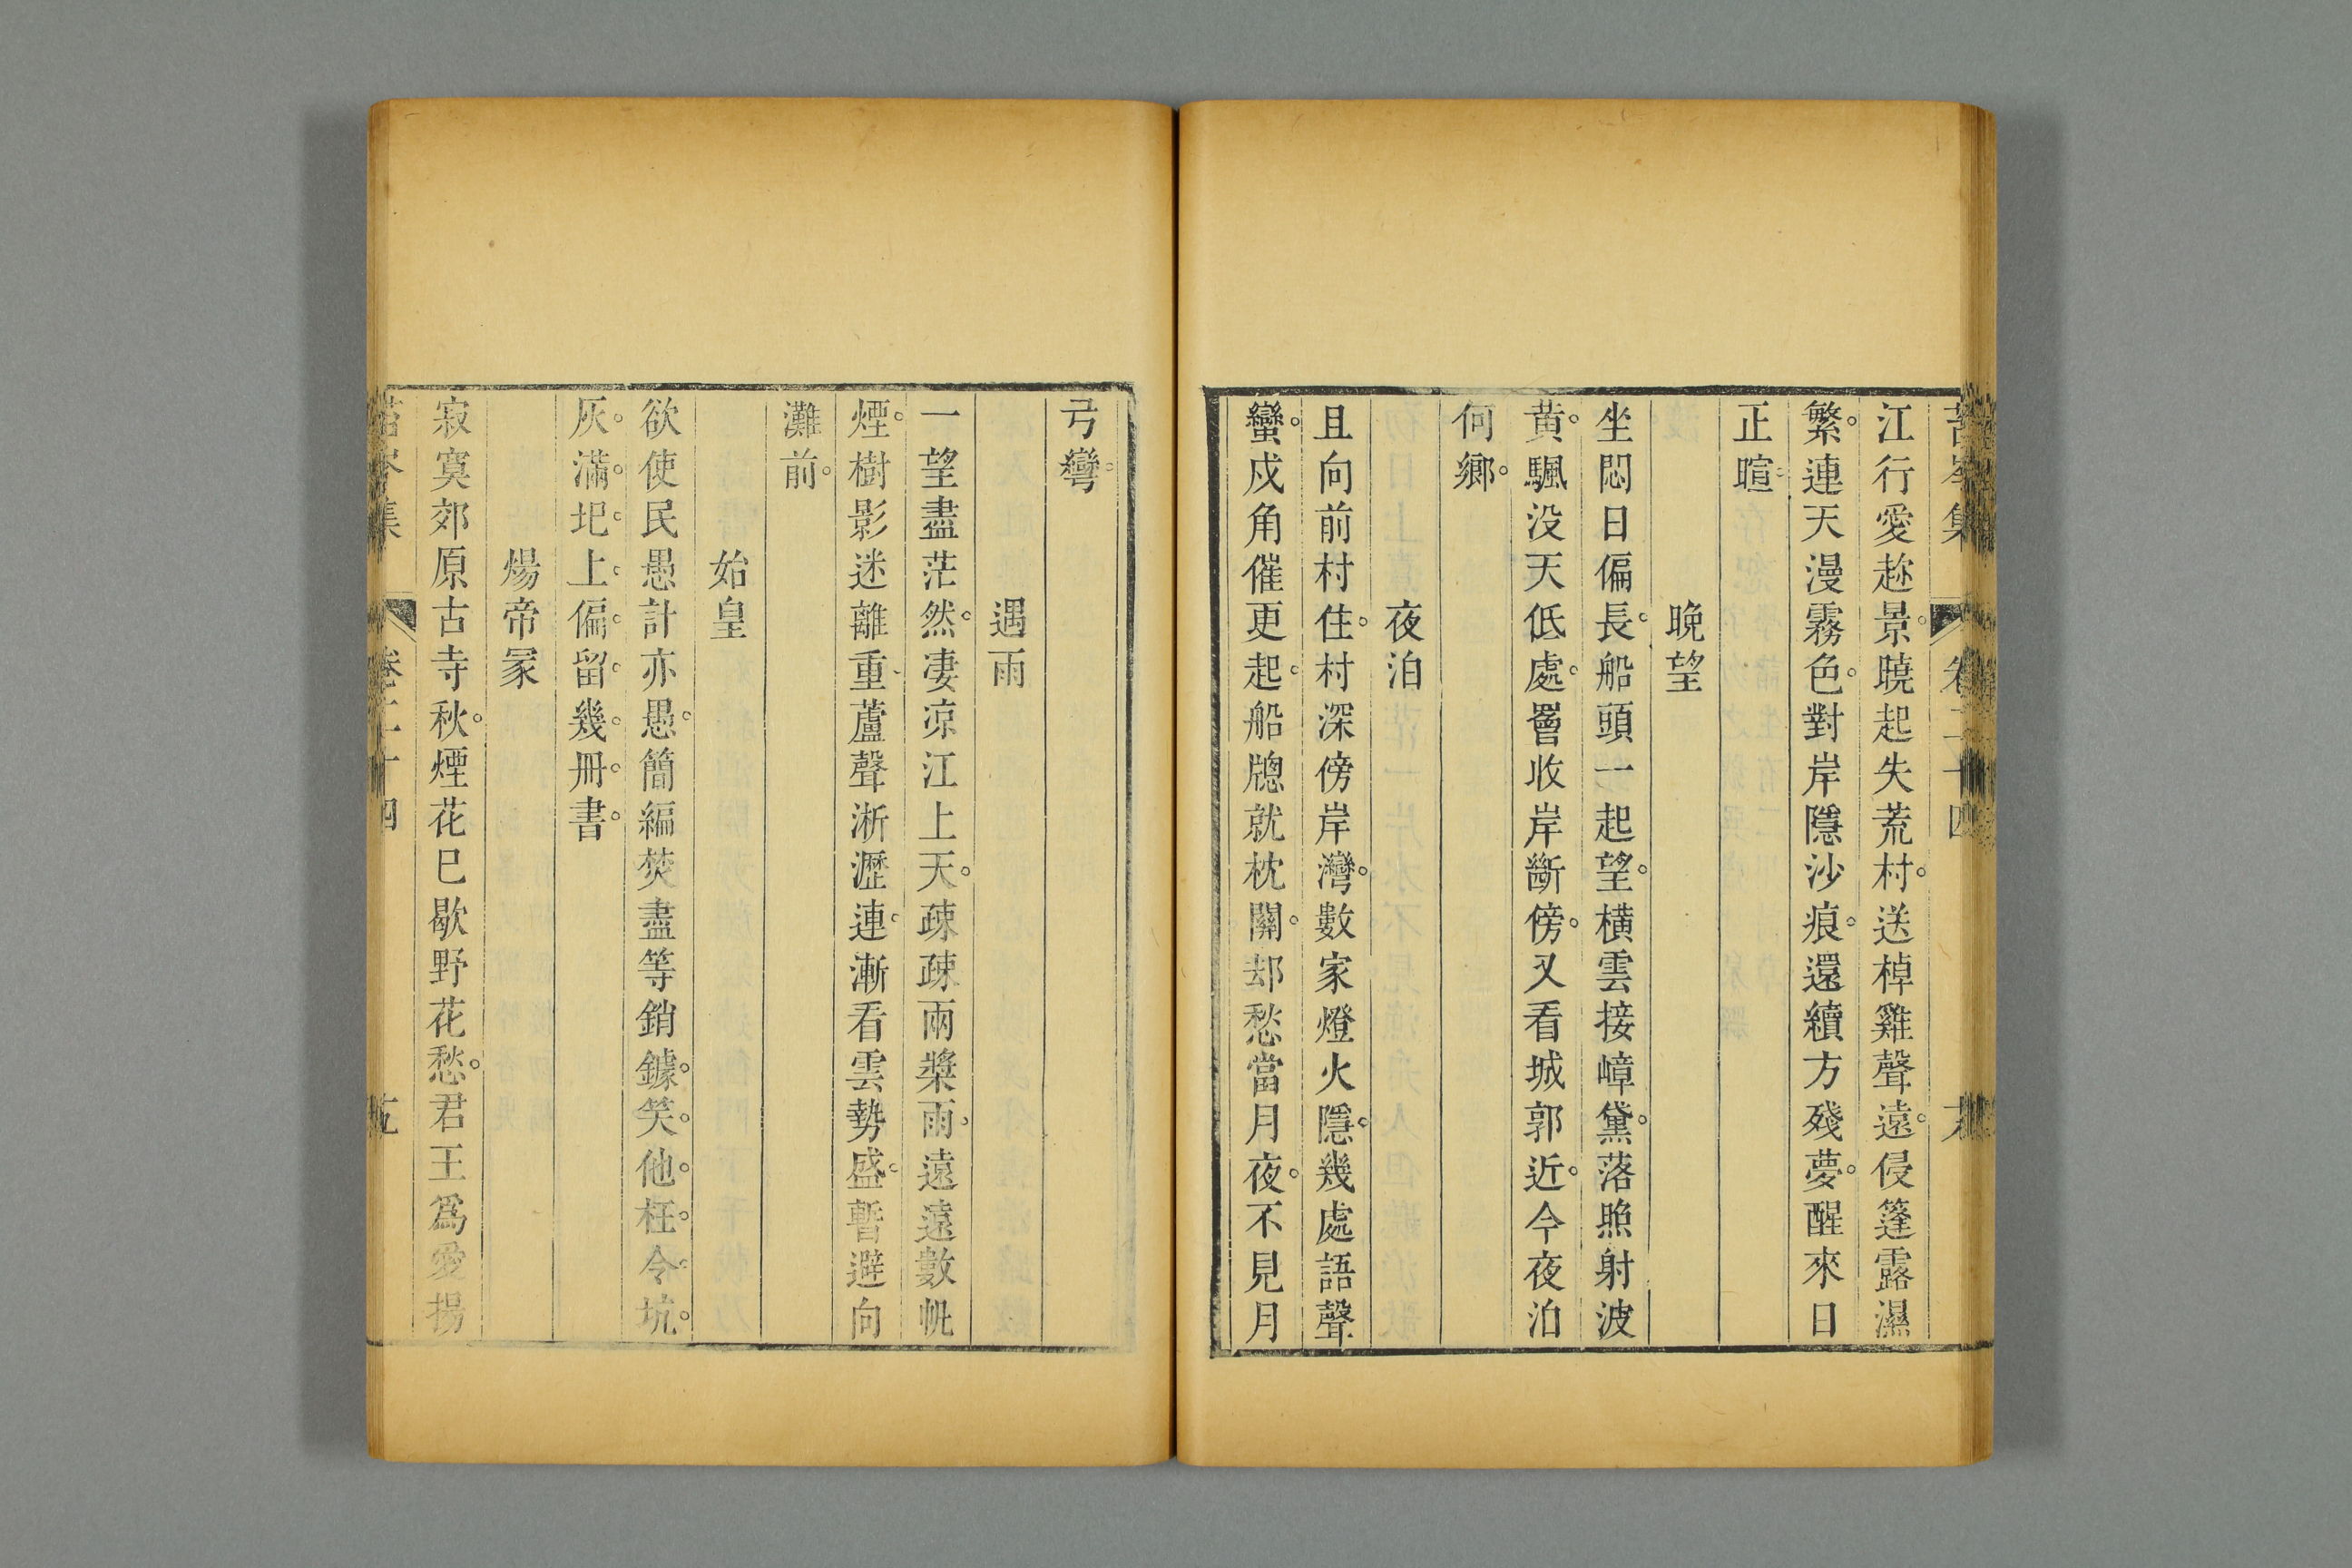 江行愛趂景曉起失荒村送棹雞聲遠侵篷露濕
繁連天漫霧色對岸隱沙痕還續方殘夢醒來日
正暄
晚望
坐悶日偏長船頭一起望橫雲接嶂黛落照射波
黄颿没天低處罾收岸斷傍又看城郭近今夜泊
何鄉
夜泊
且向前村住村深傍岸灣數家燈火隱幾處語聲
蠻戍角催更起船牕就枕關却愁當月夜不見月
弓彎
遇雨
一望盡茫然凄凉江上天疎疎兩槳雨遠遠數帆
煙樹影迷離重蘆聲淅瀝連漸看雲勢盛暫避向
灘前
始皇
欲使民愚計亦愚簡編焚盡等銷鐻笑他枉令坑
灰滿圯上偏留幾冊書
煬帝冢
寂寞郊原古寺秋煙花已歇野花愁君王爲愛揚
苔岑集 卷二十四